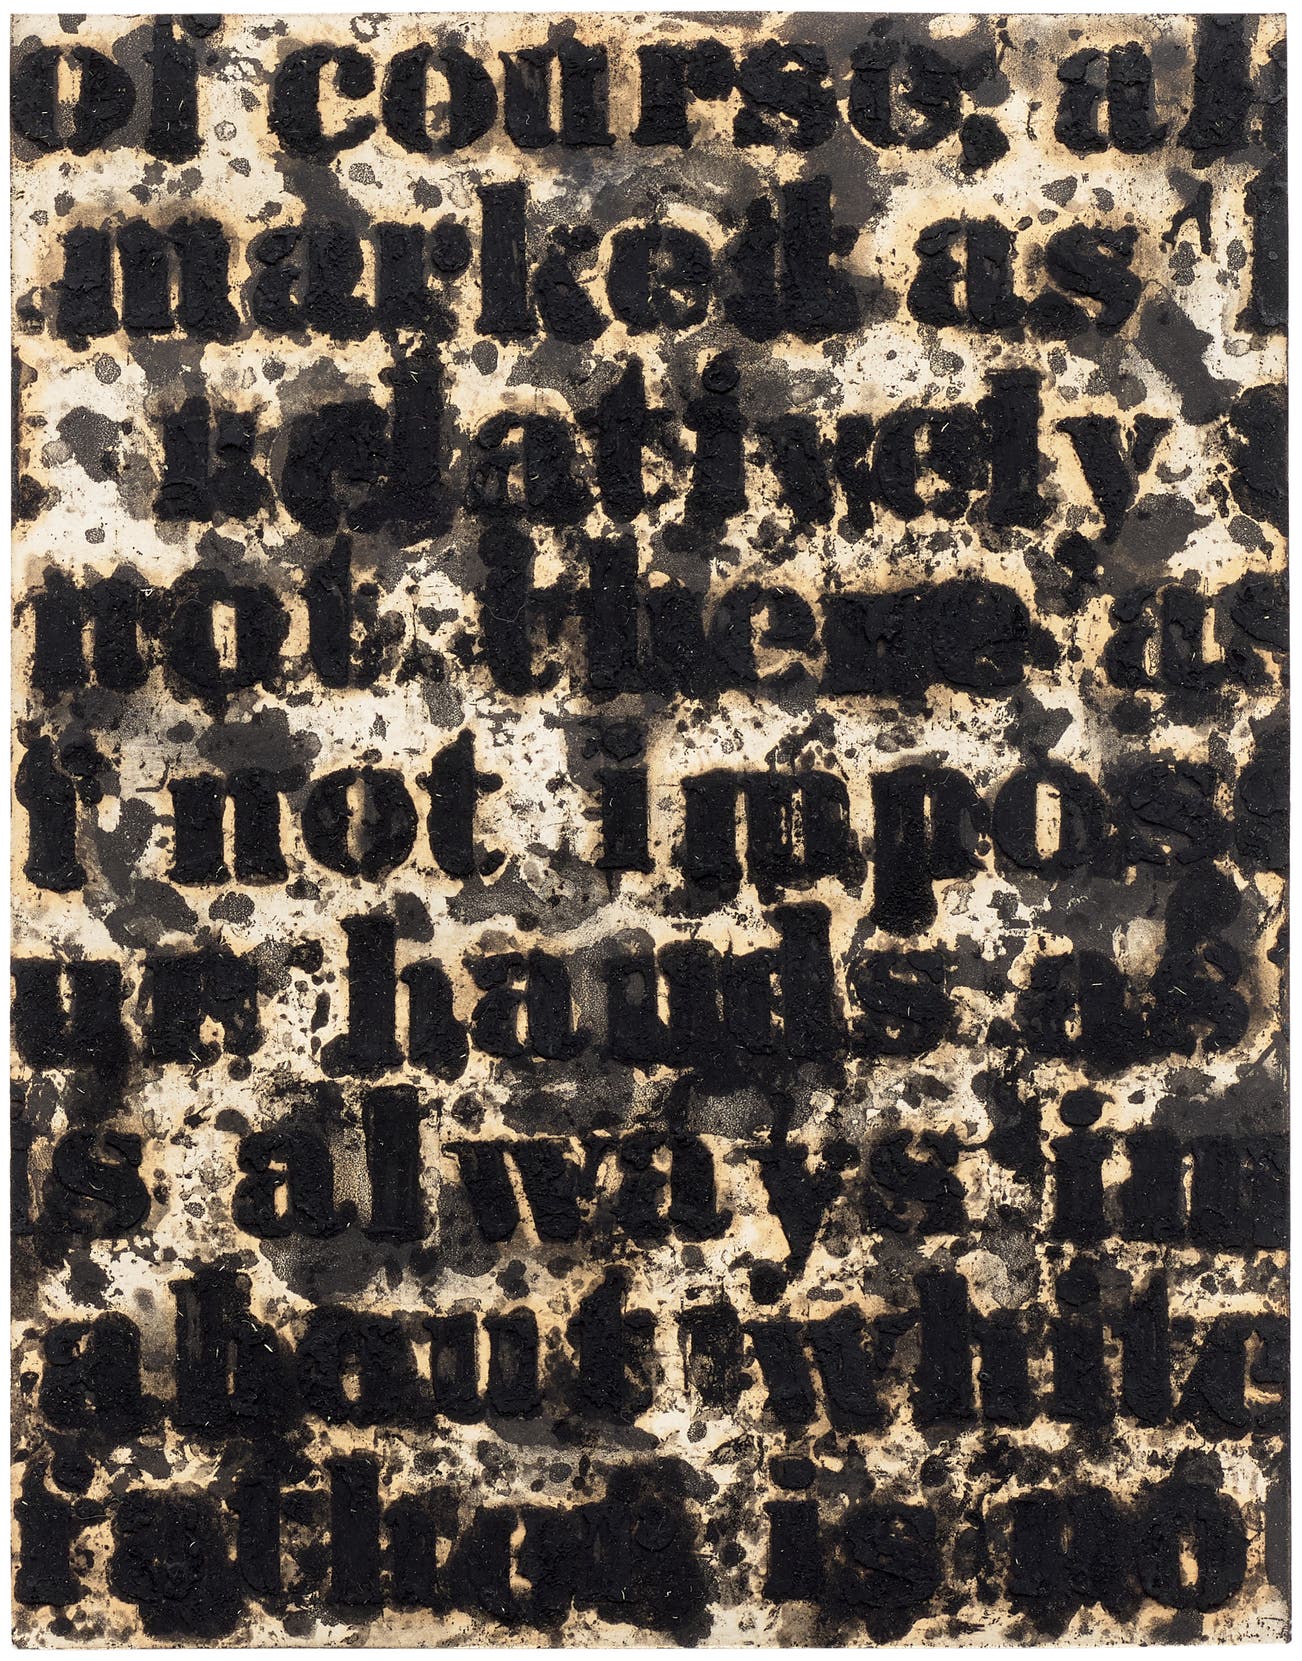 of course, al
marked as
relatively
not there as
f not imposs
ur hands as
is always im
about white
rather is no